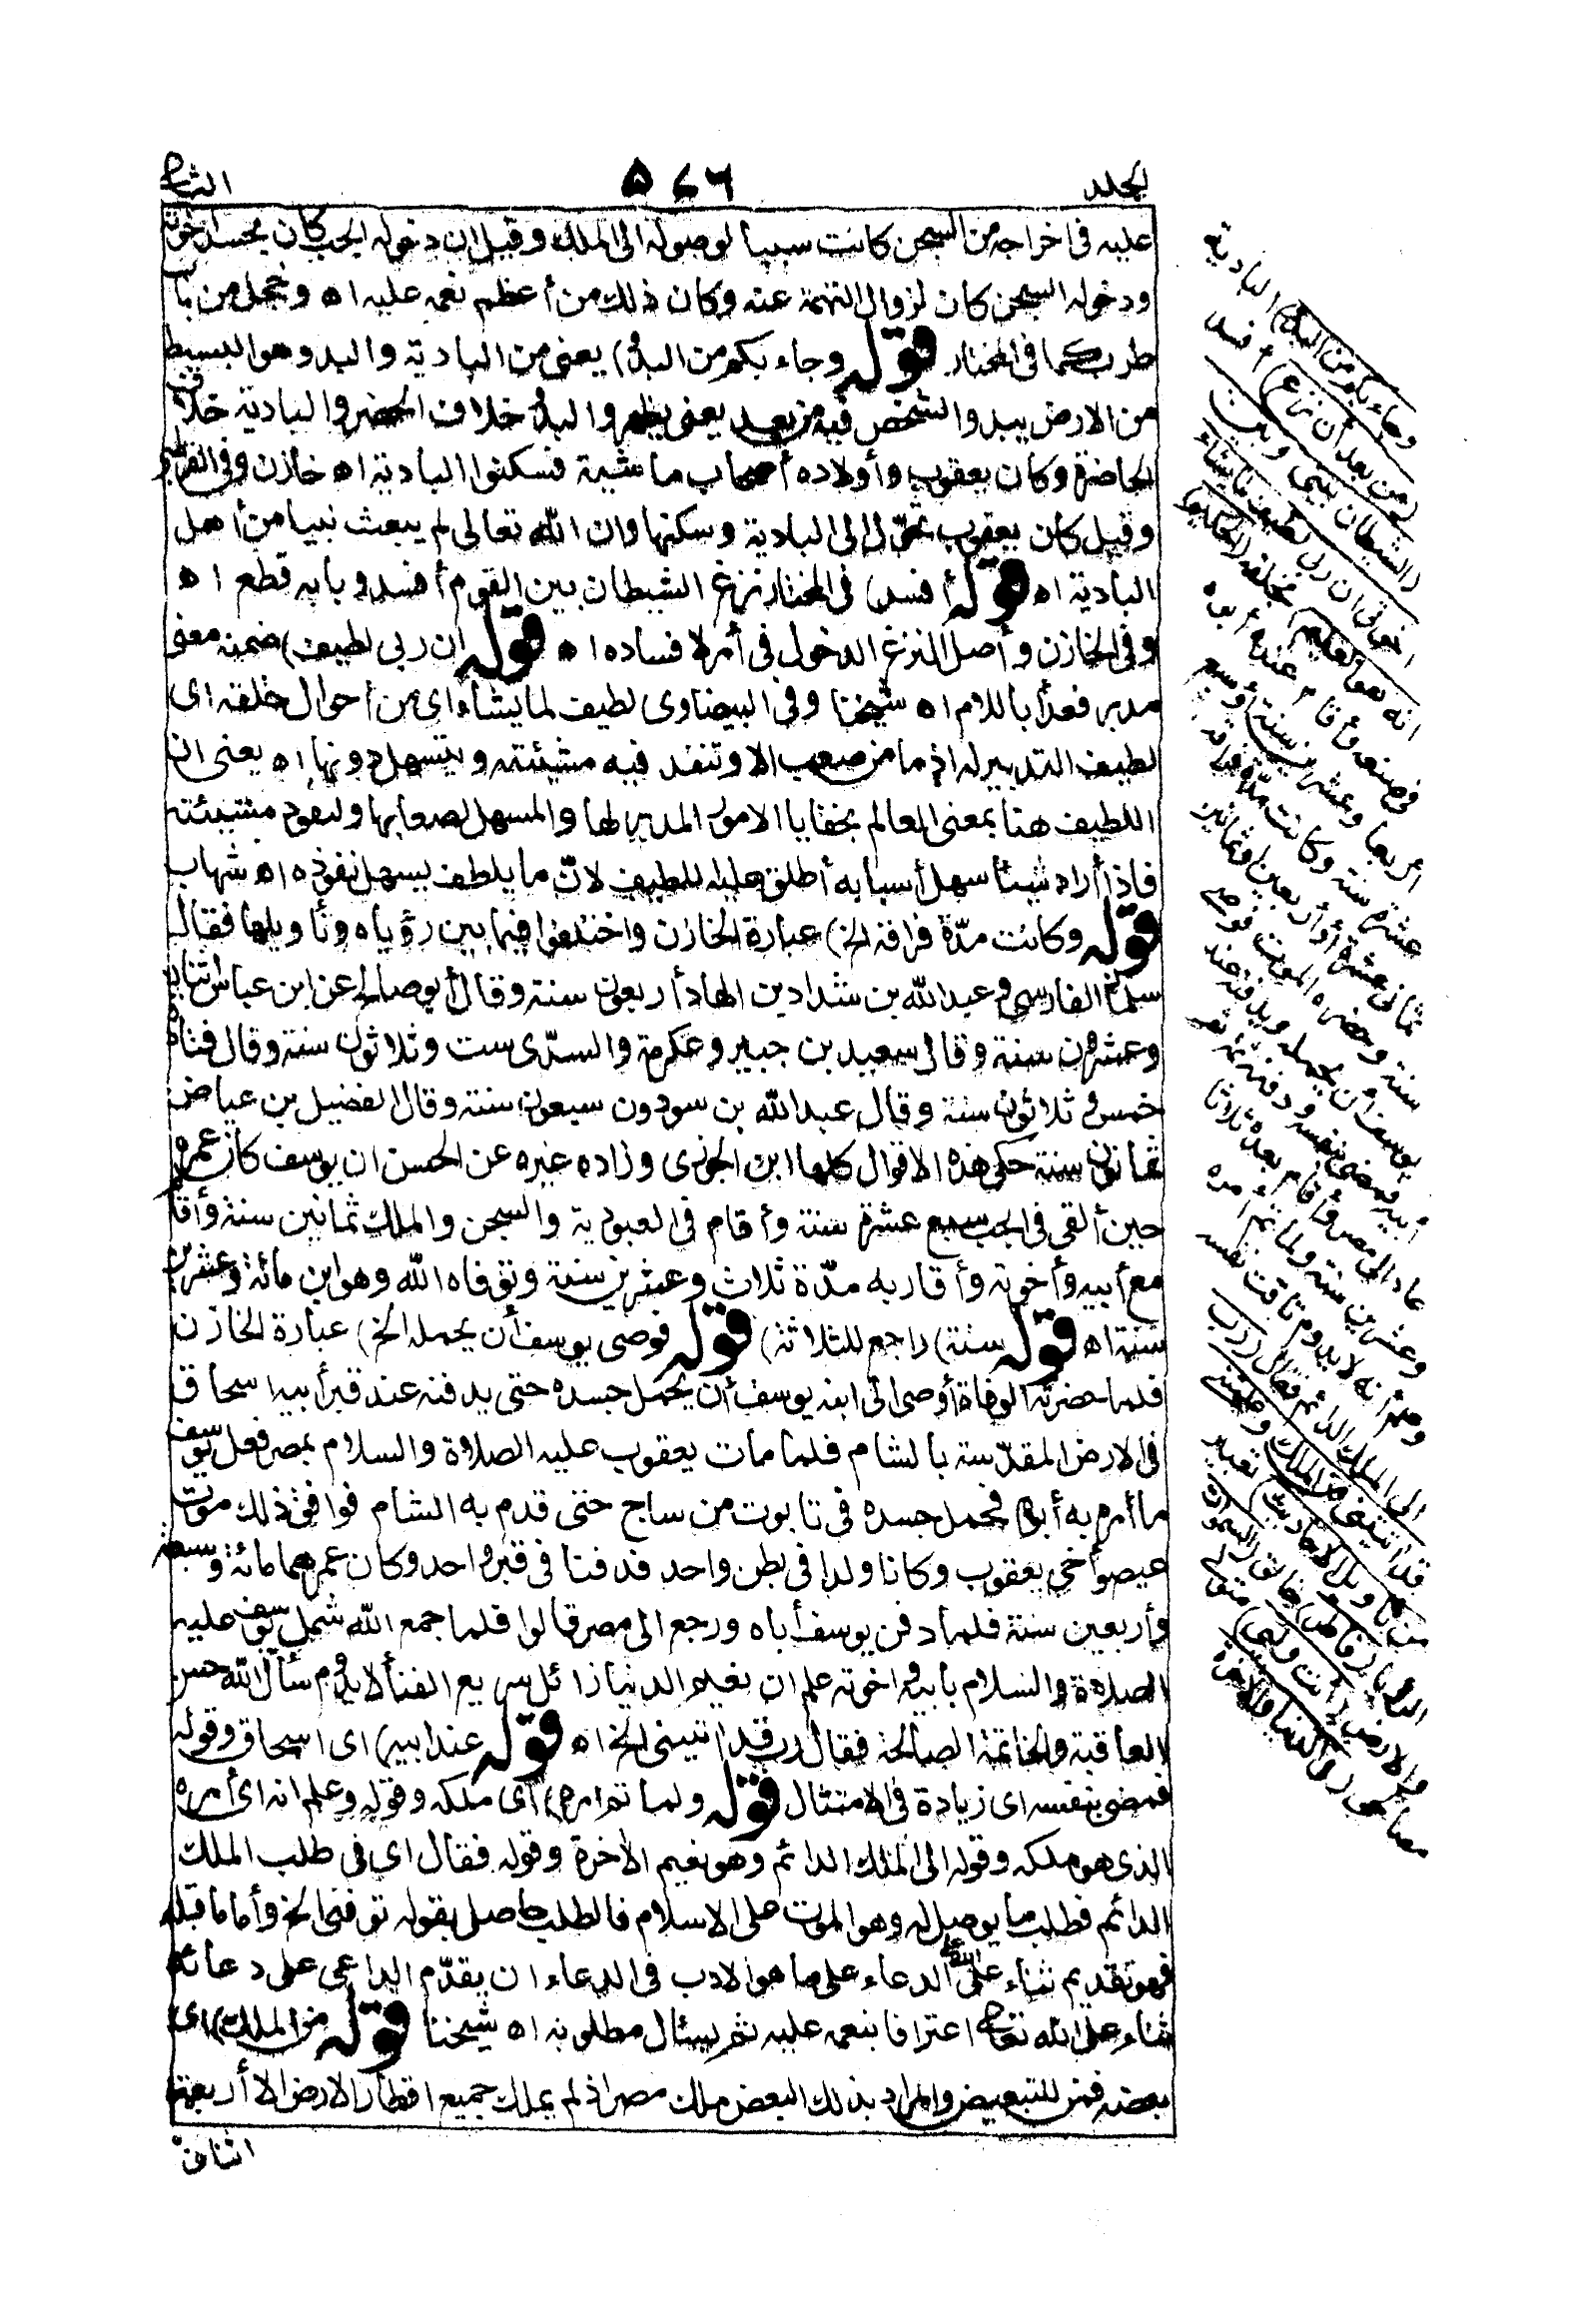 المجلد
٥٤٦
الثانى
عليه فى اخراجه من السجن كانت سببا لوصوله الى الملك وقيل ان دخوله الجب كان بحسد اخوته
ودخوله السجن كان لزوال التهمة عنه وكان ذلك من أعظم نعمه عليه اه وخجل من باب
طرب كما فى المختار قوله وجاء بكم من البدو) يعنى من البادية والبدو هو البسيط
من الارض يبدو الشخص فيه من بعد يعنى يظهر والبدو خلاف الحضر والبادية خلاف
الحاضرة وكان يعقوب وأولاده أصحاب ماشية فسكنوا البادية اه خازن وفى القرطبى
وقيل كان يعقوب تحوّل الى البادية وسكنها وان الله تعالى لم يبعث نبيا من أهل
البادية اه قوله أفسد) فى المختار نزغ الشيطان بين القوم أفسد وبابه قطع اه
وفى الخازن وأصل النزغ الدخول فى أمر لافساده اه قوله ان ربى لطيف) ضمنه معنى
مدبر فعدّاه باللام اه شيخنا وفى البيضاوى لطيف لما يشاء اى من أحوال خلقه اى
لطيف التدبير له اذ ما من صعب الا وتنفذ فيه مشيئته ويتسهل دونها اه يعنى ان
اللطيف هنا بمعنى العالم بخفايا الامور المدبر لها والمسهل لصعابها ولنفوذ مشيئته
فاذا أراد شيئا سهل أسبابه أطلق عليه اللطيف لانّ ما يلطف يسهل نفوذه اه شهاب
قوله وكانت مدّة فراقه الخ) عبارة الخازن واختلفوا فيما بين رؤياه وتأويلها فقال
سلمان الفارسى وعبد الله بن شداد بن الهاد أربعون سنة وقال أبو صالح عن ابن عباس اثنان
وعشرون سنة وقال سعيد بن جبير وعكرمة والسدّى ست وثلاثون سنة وقال قتادة
خمس وثلاثون سنة وقال عبد الله بن سودون سبعون سنة وقال الفضيل بن عياض
ثمانون سنة حكى هذه الاقوال كلها ابن الجوزى وزاده غيره عن الحسن ان يوسف كان عمره
حين ألقى فى الجب سبع عشرة سنة وأقام فى العبودية والسجن والملك ثمانين سنة وأقام
مع أبيه وأخوته وأقاربه مدّة ثلاث وعشرين سنة وتوفاه الله وهو ابن مائة وعشرين
سنة اه قوله سنة) راجع للثلاثة) قوله فوصى يوسف أن يحمله الخ) عبارة الخازن
فلما حضرته الوفاة أوصى الى ابنه يوسف أن يحمل جسده حتى يدفنه عند قبر أبيه اسحاق
فى الارض المقدّسة بالشام فلما مات يعقوب عليه الصلاة والسلام بمصر فعل يوسف
ما أمره به أبوه فحمل جسده فى تابوت من ساج حتى قدم به الشام فوافق ذلك موت
عيصو أخى يعقوب وكانا ولدا فى بطن واحد فدفنا فى قبر واحد وكان عمرهما مائة وسبعة
وأربعين سنة فلما دفن يوسف أباه ورجع الى مصر قالوا فلما جمع الله شمل يوسف عليه
الصلاة والسلام بأبيه واخوته علم ان نعيم الدنيا زائل سريع الفناء لا يدوم سأل الله حسن
العاقبة والخاتمة الصالحة فقال رب قد آتيتنى الخ اه قوله عند أبيه) اى اسحاق وقوله
فمضى بنفسه اى زيادة فى الامتثال قوله ولما تم أمره) اى ملكه وقوله وعلم انه اى أمره
الذى هو ملكه وقوله الى الملك الدائم وهو نعيم الآخرة وقوله فقال اى فى طلب الملك
الدائم فطلب ما يوصل له وهو الموت على الاسلام فالطلب حاصل بقوله توفنى الخ وأما ما قبله
فهو تقديم ثناء على الله تعالى الدعاء على ما هو الادب فى الدعاء ان يقدّم الداعى على دعائه
ثناء على الله تعالى اعترافا بنعمه عليه ثم يسئال مطلوبه اه شيخنا قوله من الملك) اى
بعضه فمن للتبعيض والمراد بذلك البعض ملك مصر اذ لم يملك جميع اقطار الارض الا أربعة
اثنان
وجاء بكم من البدو) البادية
(من بعد أن نزغ) أفسد
(الشيطان بينى وبين
اخوتى ان ربى لطيف لما يشاء
انه هو العليم) بخلقه (الحكيم)
فى صنعه وأقام عنده أبوه
أربعا وعشرين سنة أو سبع
عشرة سنة وكانت مدّة فراقه
ثمانى عشرة أو أربعين أو ثمانين
سنة وحضره الموت فوصى
يوسف أن يحمله ويدفنه عند
أبيه فمضى بنفسه ودفنه ثمة ثم
عاد الى مصر وأقام بعده ثلاثا
وعشرين سنة ولما تم أمره
وعلم انه لا يدوم تاقت نفسه
الى الملك الدائم فقال (رب
قد آتيتنى من الملك وعلمتنى
من تأويل الاحاديث) تعبير
الرؤيا (فاطر) خالق (السموات
والارض أنت وليى) متولى
مصالحى (فى الدنيا والآخرة